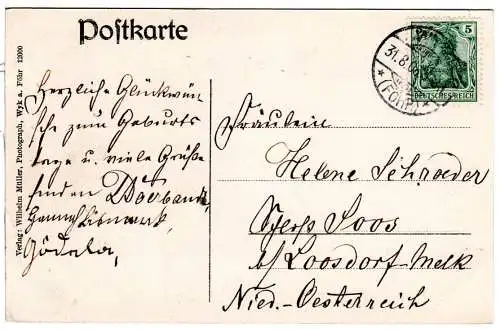 Postkarte
Verlag: Wilhelm Müller, Photograph, Wyk a. Föhr 12000
Herzliche Glückwün
sche zum Geburts
tage u. viele Grüße
senden
5
DEUTSCHES REICH
31.8.
(FÖHR)
Fräulein
Helene Schroeder
Soos
b/ Loosdorf-Melk
Nied.-Oesterreich